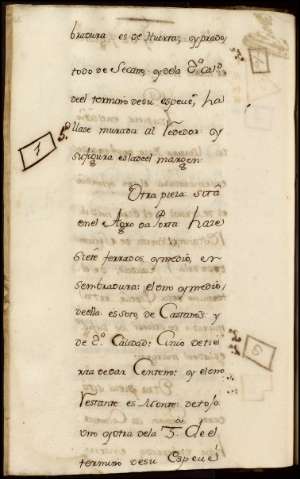 bradura es de Huerta, y prado,
todo de Secano, y de la 2.ª Calid.
de el termino de su especie, ha
llase murada al rededor y
su figura es la del margen
1 5.
Otra pieza sita
en el Agro da Porta haze
siete ferrados, y medio, en
sembradura: el uno y medio,
de ella es soto, de Castaños y
de 2.ª Calidad: Cinco de tie
rra de dar Centeno: y el uno
restante es Monte: de tojo
uno y otra de la 3.ª de el
termino de su Especie